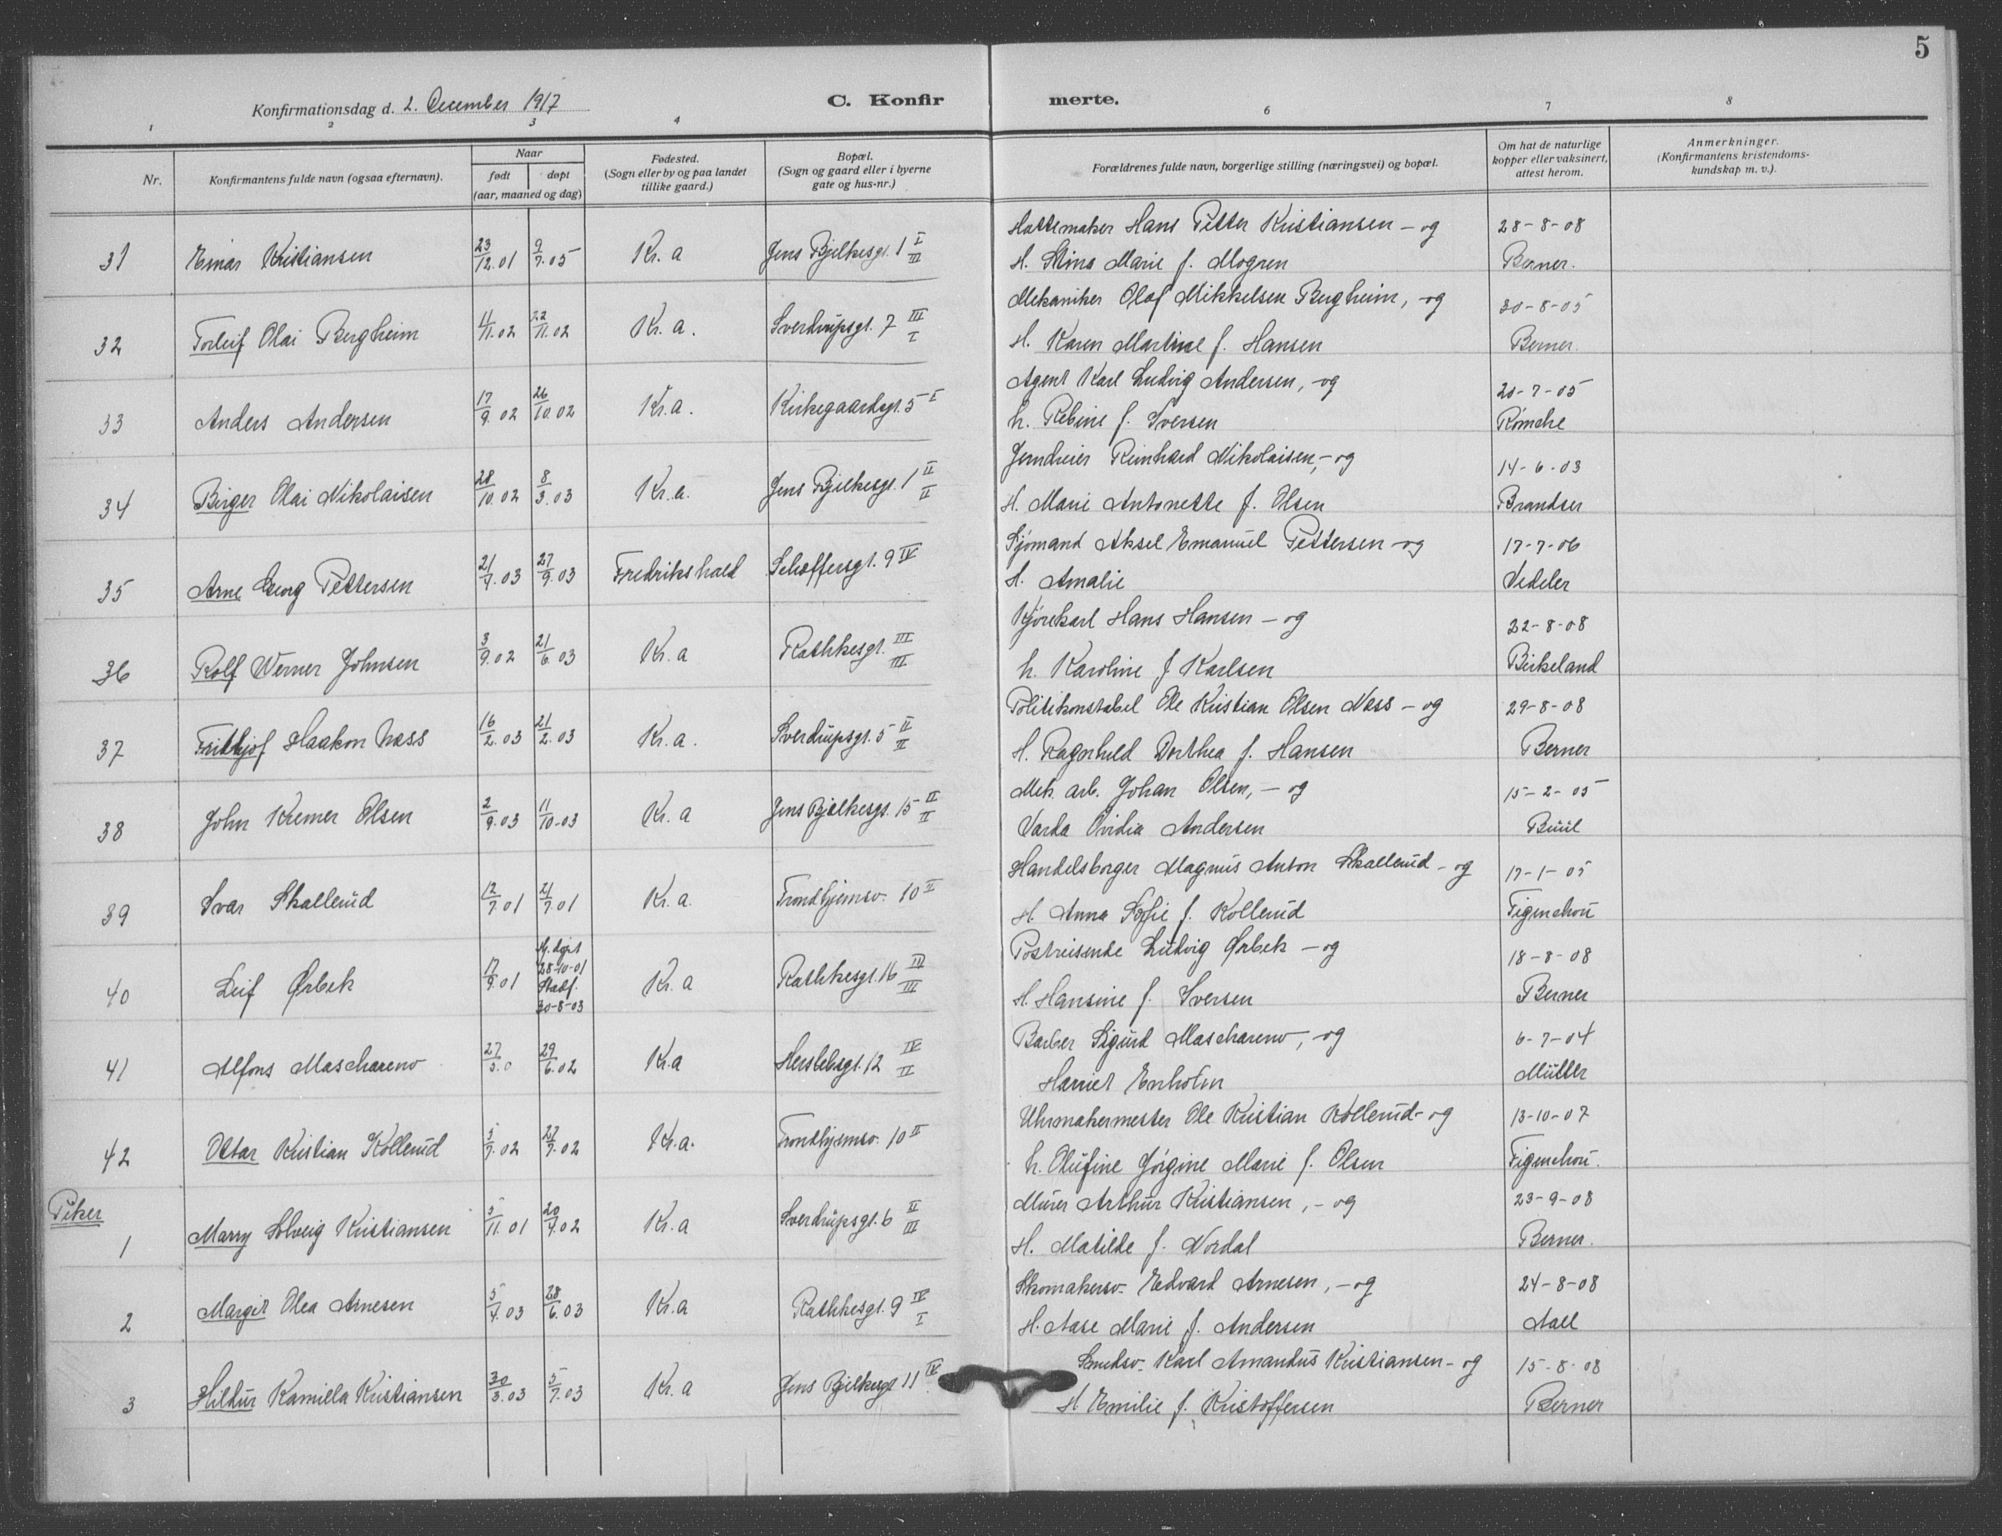 5
Konfirmationsdag d. 2. December 1917 C. Konfir merte.
1 2 3 4 6 7 8
Nr. Konfirmantens fulde navn (ogsaa efternavn). Naar født døpt (aar, maaned og dag) Fødested. (Sogn eller by og paa landet tillike gaard.) Bopæl. (Sogn og gaard eller i byerne gate og hus-nr.) Forældrenes fulde navn, borgerlige stilling (næringsvei) og bopæl. Om hat de naturlige kopper eller vaksinert, attest herom. Anmerkninger. (Konfirmantens kristendoms-kundskap m. v.).
Hattemaker Hans Petter Kristiansen - og 28-8-08
31 Einar Kristiansen 23/12.01 9/7.05 Kr. a Jens Bjelkesgt. 1 I/III H. Stina Marie f. Mogren Berner.
Mekaniker Olaf Mikkelsen Bergheim, - og 30-8-05
32 Torleif Olai Bergheim 4/11.02 22/11.02 Kr. a. Sverdrupsgt. 7 III/I H. Karen Martine f. Hansen Berner.
Agent Karl Ludvig Andersen, - og 20-7-05
33 Anders Andersen 17/9.02 26/10.02 Kr. a. Kirkegaardsgt. 5 I h. Rebine f. Iversen Rømcke
Jerndreier Reinhard Nikolaisen, - og 14-6-03
34 Birger Olai Nikolaisen 28/10.02 8/3.03 Kr. a. Jens Bjelkesgt. 1 II/II H. Marie Antonette f. Olsen Brandser
Sjømand Aksel Emanuel Pettersen - og 17-7-06
35 Arne Georg Pettersen 21/4.03 27/9.03 Fredrikshald Schøffersgt. 9 IV H. Amalie Vedeler
Kjørekarl Hans Hansen - og 22-8-08
36 Rolf Werner Johnsen 3/9.02 21/6.03 Kr. a Rathkesgt. III/III h. Karoline f Karlsen Birkeland
Politikonstabel Ole Kristian Olsen Næss - og 29-8-08
37 Frithjof Haakon Næss 16/2.03 21/2.03 Kr. a. Sverdrupsgt. 5 II/II H. Ragnhild Dorthea f. Hansen Berner
Mek. arb. Johan Olsen, - og 15-2-05
38 John Kremer Olsen 2/9.03 11/10-03 Kr. a Jens Bjelkesgt. 15 II/II Varda Ovidia Andersen Buul
Handelsborger Magnus Anton Skallerud - og 17-1-05
39 Ivar Skallerud 12/7.01 21/7.01 Kr. a. Trondhjemsv. 10 II H. Anna Sofie f. Kollerud Figenschou
Postreisende Ludvig Ørbek - og 18-8-08
40 Leif Ørbek 17/9.01 Hj. døpt 28-10-01 Stadf. 30-8-03 Kr. a Rathkesgt. 16 III/III H. Hansine f. Iversen Berner
Barber Sigurd Mascharenv, - og 6-7-04
41 Alfons Mascharenv 27/5.0 29/6.02 Kr. a Herslebsgt. 12 IV/II Harriet Enholm Müller
Uhrmakermester Ole Kristian Kollerud - og 13-10-07
42 Ottar Kristian Kollerud 5/7.02 27/7.02 Kr. a. Trondhjemsv. 10 II h. Olufine Jørgine Marie f. Olsen Figenschou.
Piker
Murer Arthur Kristiansen, - og 23-9-08
1 Marry Solveig Kristiansen 5/11.01 20/4.02 Kr. a Sverdrupsgt. 6 II/III H. Matilde f. Nordal Berner.
Skomakersv. Edvard Arnesen, - og 24-8-08
2 Margit Olea Arnesen 5/4.03 28/6.03 Kr. a Rathkesgt. 9 IV/I H. Aase Marie f. Andersen Aall
Smedsv. Karl Amandus Kristiansen - og 15-8-08
3 Hildur Kamilla Kristiansen 30/3.03 5/7.03 Kr. a Jens Bjelkesgt 11 IV H Emilie f. Kristoffersen Berner